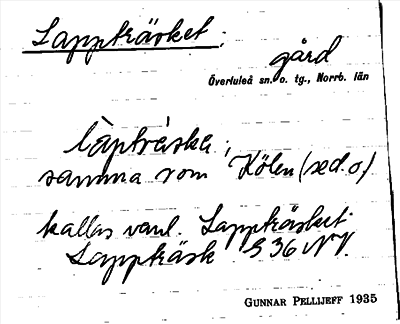 Lappträsket.
gård
Överluleå sn. o. tg., Norrb. län
làptráska;
samma som Kölen (sed. o.)
kallas vanl. Lappträsket.
Lappträsk S 36 NV.
GUNNAR PELLIJEFF 1935